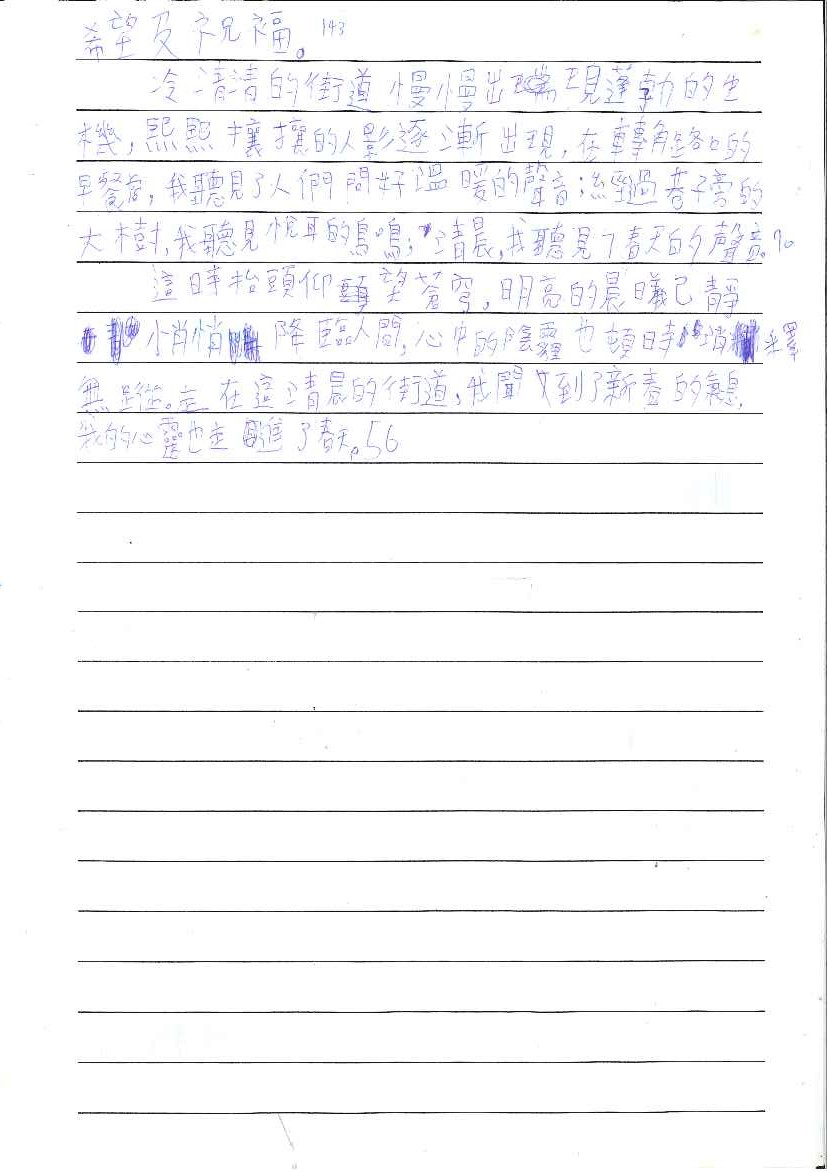 希望及祝福。143
冷清清的街道慢慢出現蓬勃的生
機,熙熙攘攘的人影逐漸出現,在轉角路口的
早餐店,我聽見了人們問好溫暖的聲音;流過巷子旁的
大樹,我聽見悅耳的鳥鳴;清晨,我聽見了春天的聲音。90
這時抬頭仰望蒼穹,明亮的晨曦已靜
悄悄降臨人間,心中的陰霾也頓時消釋
無蹤。走在這清晨的街道,我聞到了新春的氣息,
我的心靈也走進了春天。56